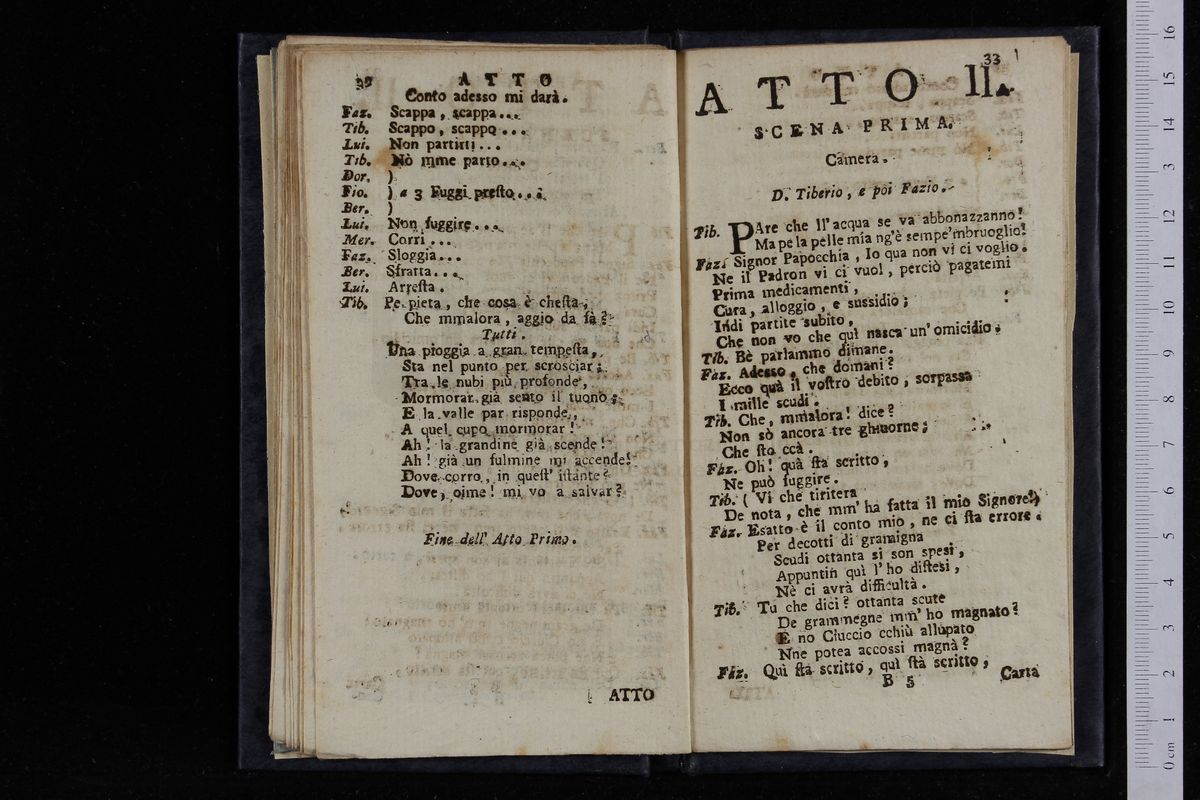 32 ATTO
Conto adesso mi darà.
Faz. Scappa, scappa...
Tib. Scappo, scappo...
Lui. Non partirti...
Tib. Nò mme parto...
Dor. )
Fio. ) a 3 Fuggi presto...
Ber. )
Lui. Non fuggire...
Mer. Corri...
Faz. Sloggia...
Ber. Sfratta...
Lui. Arresta.
Tib. Pe pieta, che cosa è chesta;
Che mmalora, aggio da fà?
Tutti.
Una pioggia a gran tempesta,
Sta nel punto per scrosciar;
Tra le nubi più profonde,
Mormorar già sento il tuono;
E la valle par risponde,
A quel cupo mormorar!
Ah! la grandine già scende!
Ah! già un fulmine mi accende!
Dove corro, in quest' istante?
Dove, oime! mi vo a salvar?
Fine dell' Atto Primo.
ATTO
33
ATTO II.
SCENA PRIMA.
Camera.
D. Tiberio, e poi Fazio.
Tib. PAre che ll' acqua se va abbonazzanno!
Ma pe la pelle mia ng'è sempe 'mbruoglio!
Faz. Signor Papocchia, Io qua non vi ci voglio.
Ne il Padron vi ci vuol, perciò pagatemi
Prima medicamenti,
Cura, alloggio, e sussidio;
Indi partite subito,
Che non vo che quì nasca un' omicidio.
Tib. Bè parlammo dimane.
Faz. Adesso, che domani?
Ecco quà il vostro debito, sorpassa
I mille scudi.
Tib. Che, mmalora! dice?
Non sò ancora tre ghiuorne;
Che sto ccà.
Faz. Oh! quà sta scritto,
Ne può fuggire.
Tib. ( Vi che tiritera
De nota, che mm' ha fatta il mio Signore!)
Faz. Esatto è il conto mio, ne ci sta errore.
Per decotti di gramigna
Scudi ottanta si son spesi,
Appuntin quì l' ho distesi,
Nè ci avrà difficultà.
Tib. Tu che dici? ottanta scute
De grammegne mm' ho magnato?
E no Ciuccio cchiù allupato
Nne potea accossì magnà?
Faz. Quì sta scritto, quì stà scritto,
B 5 Carta
16
15
14
13
12
11
10
9
8
7
6
5
4
3
2
1
0 cm